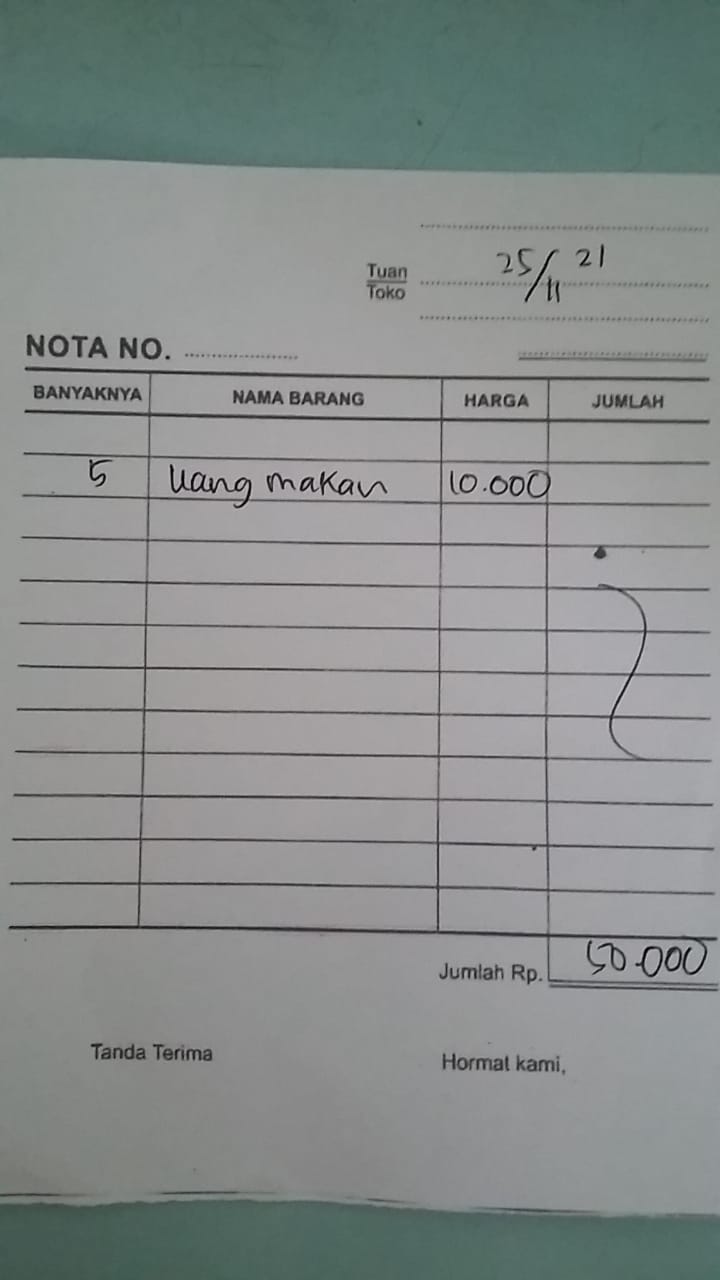 25/11 21
Tuan
Toko
NOTA NO.
BANYAKNYA NAMA BARANG HARGA JUMLAH
5 Uang makan 10.000
Jumlah Rp. 50.000
Tanda Terima Hormat kami,